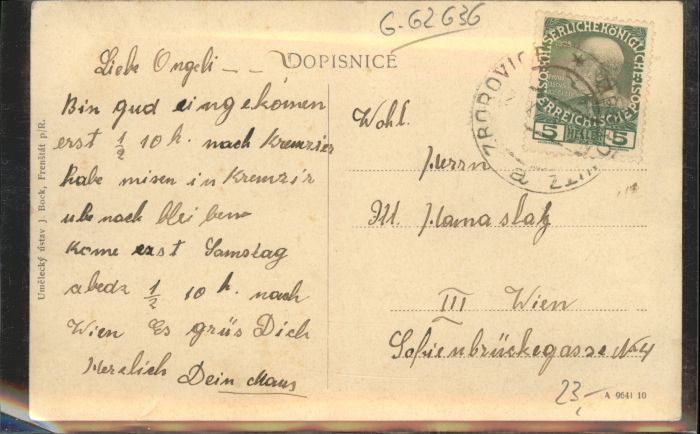 G-G2G36
DOPISNICE
Liebe Ongeli - -
Bin gud eingekomen
erst 1/2 10 h. nach Kremzier
habe misen in Kremzir
ube nach blei bene
Kome erst Samstag
abedz 1/2 10 h. nach
Wien Es grüs Dich
Herzlich Dein Maus
Umělecký ústav J. Bock, Frenštát p/R.
ZBOROVIC
5 HELLER 5
Wohl.
Herrn
M. Hamaslak
III Wien
Sofienbrückegasse No 4
23,-
A 9641 10